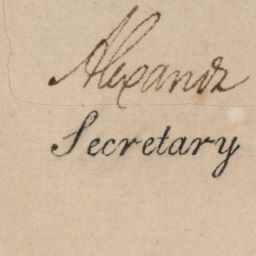 Alexandr
Secretary